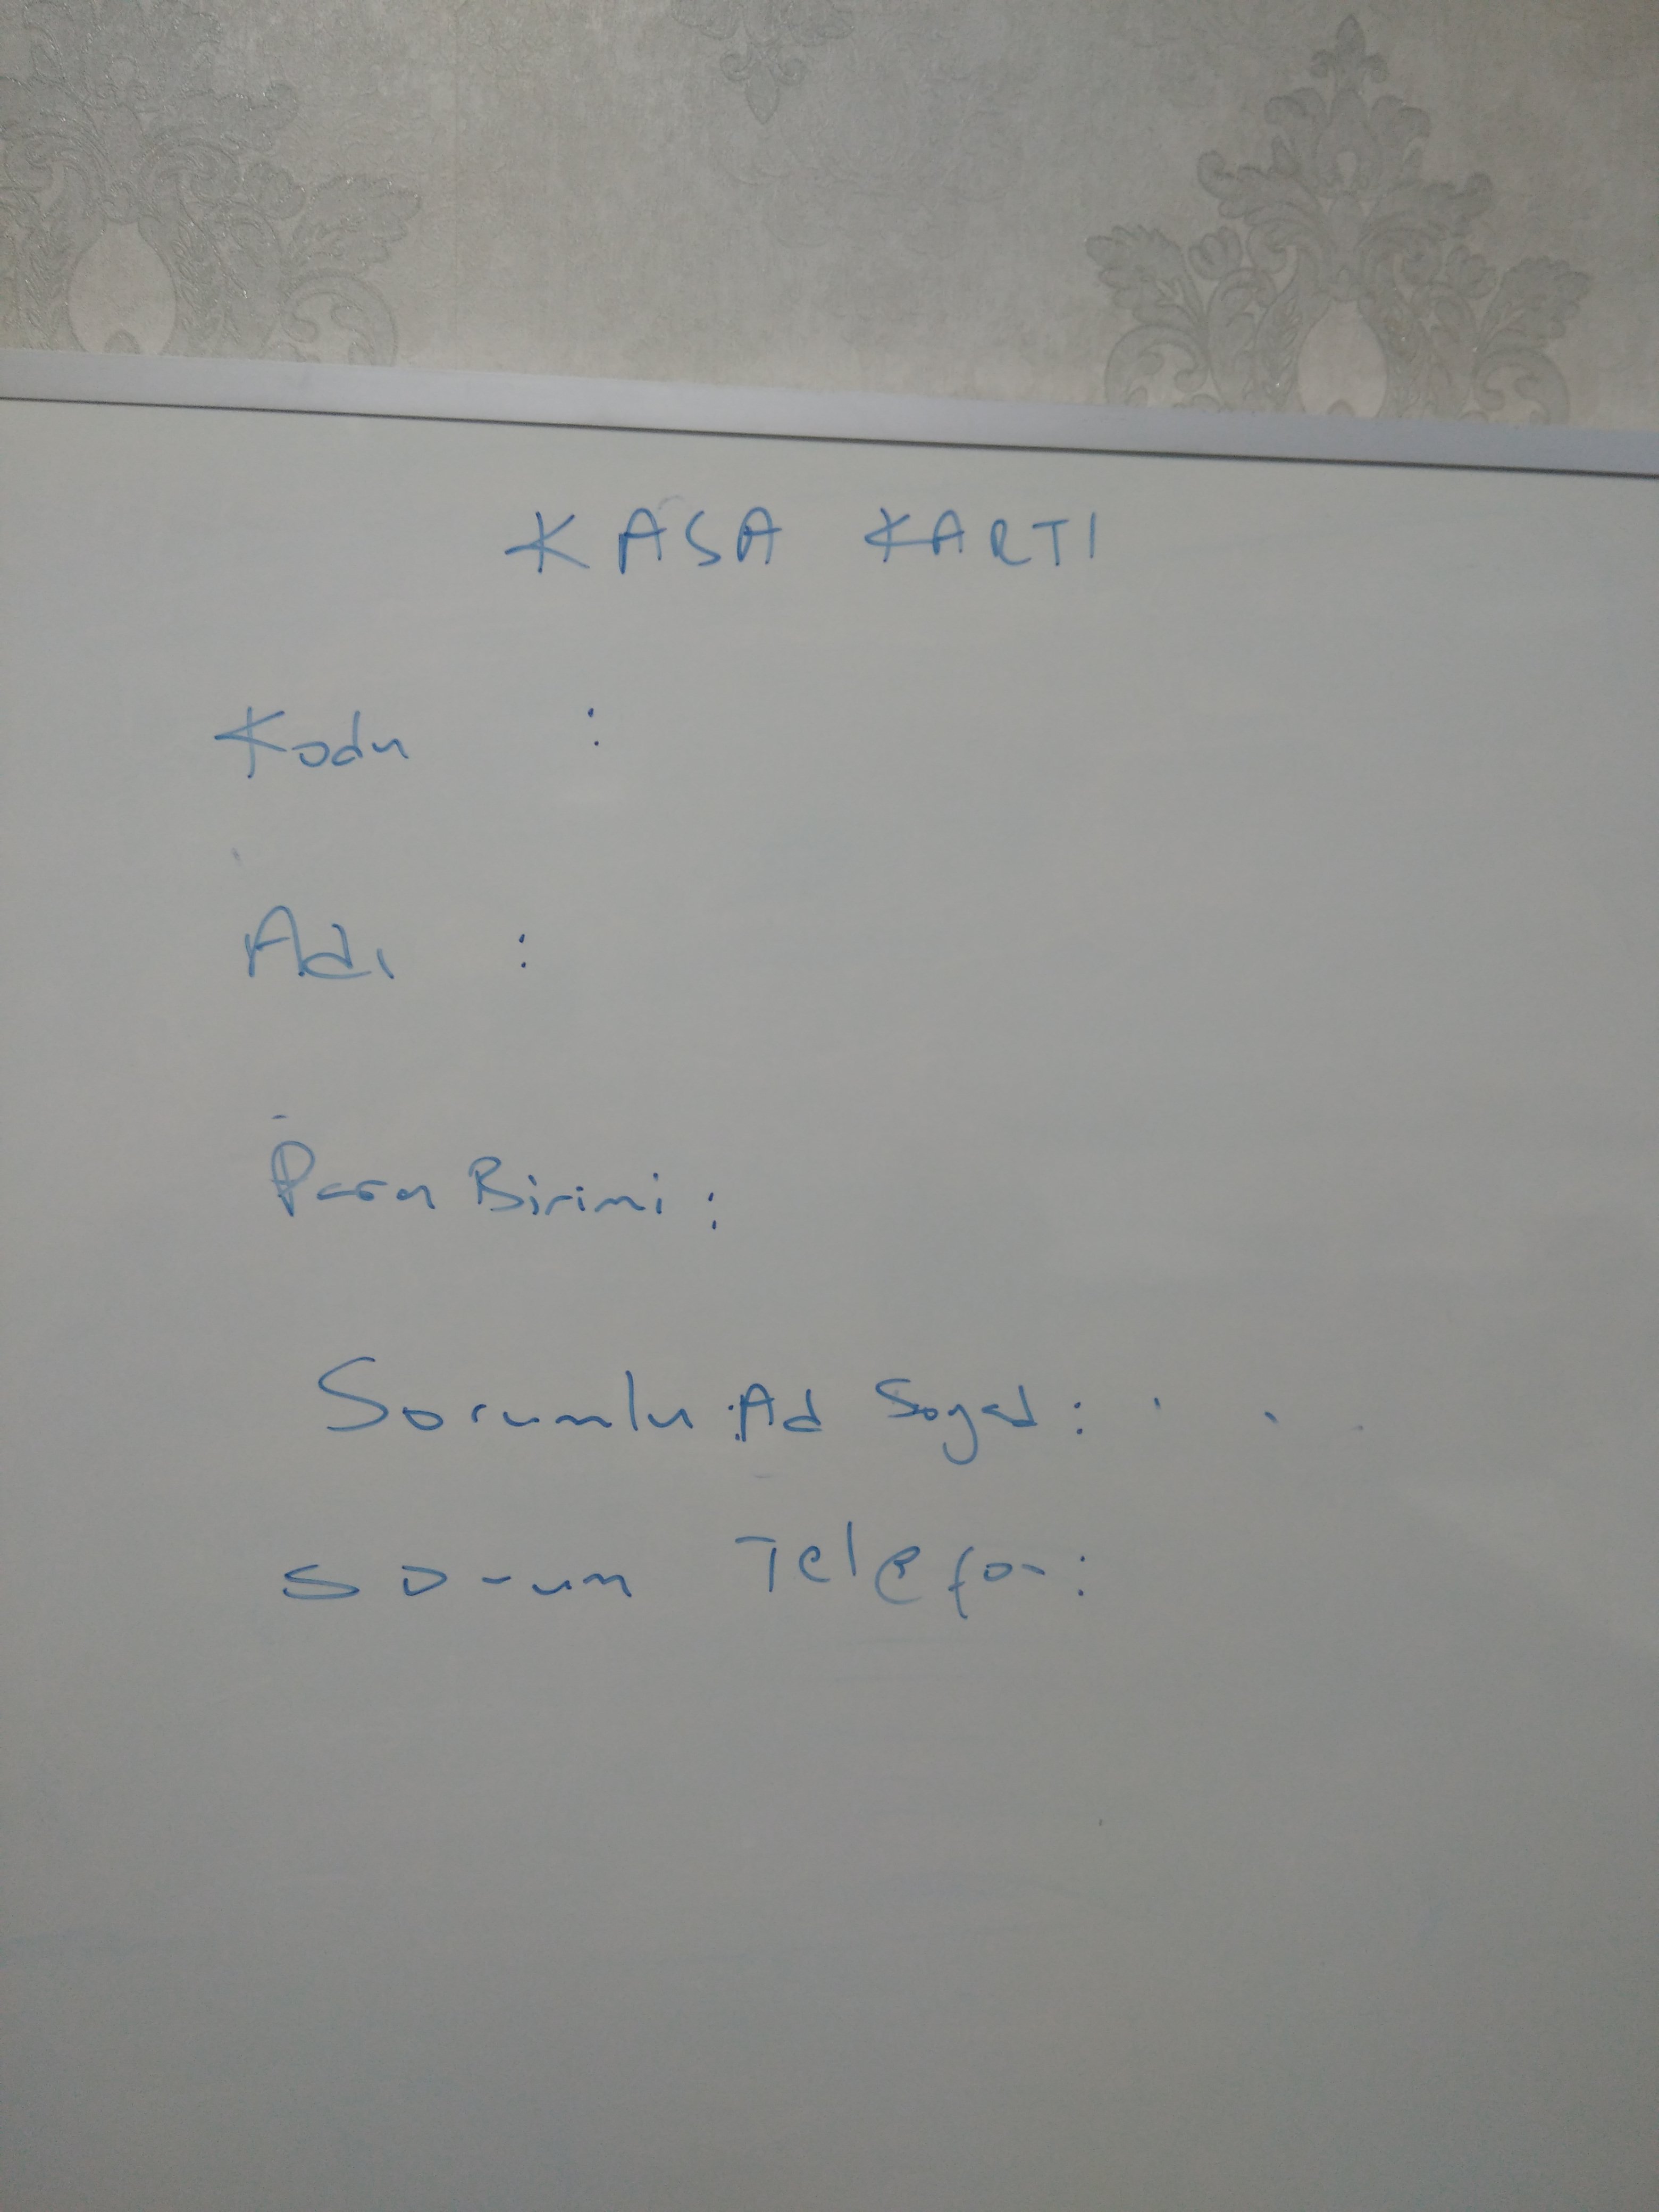 KASA KARTI
Kodu :
Adı :
Para Birimi :
Sorumlu Ad Soyad :
Sorum Telefon :